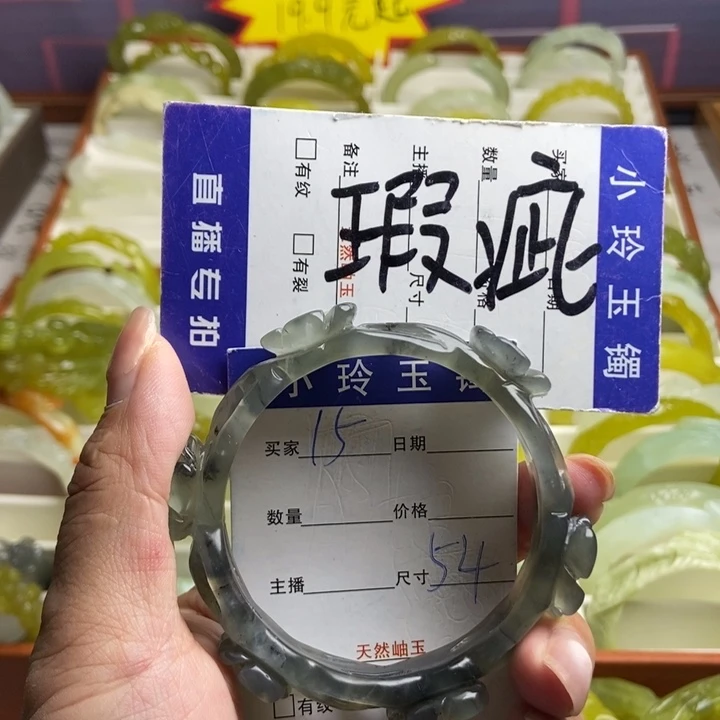 19.9元起
小玲玉镯
瑕疵
买家 日期
数量 价格
主播 尺寸
备注 天然岫玉
□有纹 □有裂
直播专拍
小玲玉镯
买家15 日期
数量 价格
主播 尺寸54
天然岫玉
□有纹